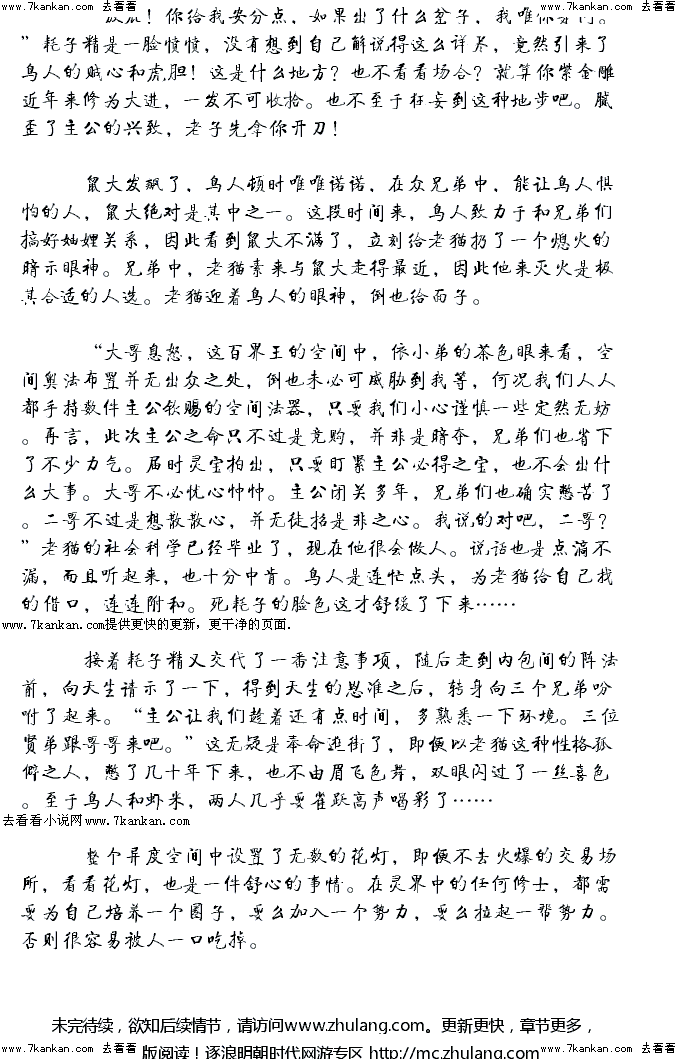 www.7kankan.com 去看看 去看看 www.7kankan.com 去看看
！你给我安分点，如果出了什么岔子，我唯你是问。
”耗子精是一脸愤愤，没有想到自己解说得这么详尽，竟然引来了
鸟人的贼心和虎胆！这是什么地方？也不看看场合？就算你紫金雕
近年来修为大进，一发不可收拾。也不至于狂妄到这种地步吧。腻
歪了主公的兴致，老子先拿你开刀！
鼠大发飙了，鸟人顿时唯唯诺诺，在众兄弟中，能让鸟人惧
怕的人，鼠大绝对是其中之一。这段时间来，鸟人致力于和兄弟们
搞好妯娌关系，因此看到鼠大不满了，立刻给老猫扔了一个熄火的
暗示眼神。兄弟中，老猫素来与鼠大走得最近，因此他来灭火是极
其合适的人选。老猫迎着鸟人的眼神，倒也给面子。
“大哥息怒，这百界王的空间中，依小弟的茶色眼来看，空
间奥法布置并无出众之处，倒也未必可威胁到我等，何况我们人人
都手持数件主公钦赐的空间法器，只要我们小心谨慎一些定然无妨
。再言，此次主公之命只不过是竞购，并非是暗夺，兄弟们也省下
了不少力气。届时灵宝拍出，只要盯紧主公必得之宝，也不会出什
么大事。大哥不必忧心忡忡。主公闭关多年，兄弟们也确实憋苦了
。二哥不过是想散散心，并无徒招是非之心。我说的对吧，二哥？
”老猫的社会科学已经毕业了，现在他很会做人。说话也是点滴不
漏，而且听起来，也十分中肯。鸟人是连忙点头，为老猫给自己找
的借口，连连附和。死耗子的脸色这才舒缓了下来……
www.7kankan.com提供更快的更新，更干净的页面.
接着耗子精又交代了一番注意事项，随后走到内包间的阵法
前，向天生请示了一下，得到天生的恩准之后，转身向三个兄弟吩
咐了起来。“主公让我们趁着还有点时间，多熟悉一下环境。三位
贤弟跟哥哥来吧。”这无疑是奉命逛街了，即便以老猫这种性格孤
僻之人，憋了几十年下来，也不由眉飞色舞，双眼闪过了一丝喜色
。至于鸟人和虾米，两人几乎要雀跃高声喝彩了……
去看看小说网www.7kankan.com
整个异度空间中设置了无数的花灯，即便不去火爆的交易场
所，看看花灯，也是一件舒心的事情。在灵界中的任何修士，都需
要为自己培养一个圈子，要么加入一个势力，要么拉起一帮势力。
否则很容易被人一口吃掉。
未完待续，欲知后续情节，请访问www.zhulang.com。更新更快，章节更多，
www.7kankan.com 去看看 版阅读！逐浪明朝时代网游专区 http://mc.zhulang.com www.7kankan.com 去看看